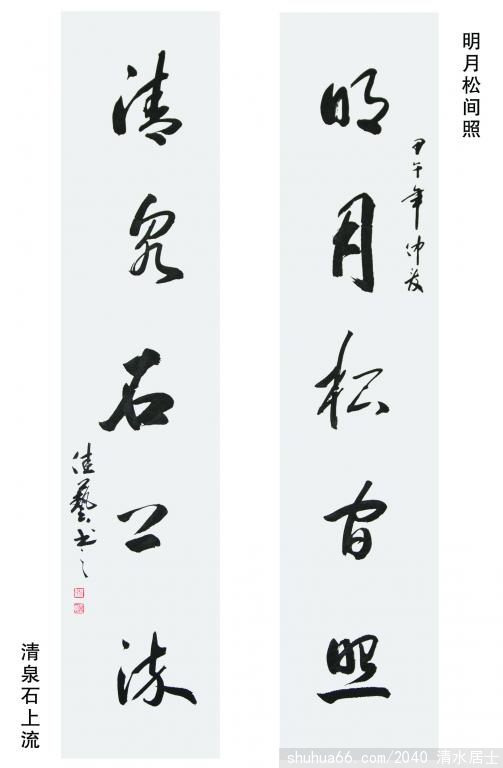 明月松间照
甲午年仲夏
明月松间照
清泉石上流
佳艺书之
清泉石上流
shuhua66.com/2040 清水居士